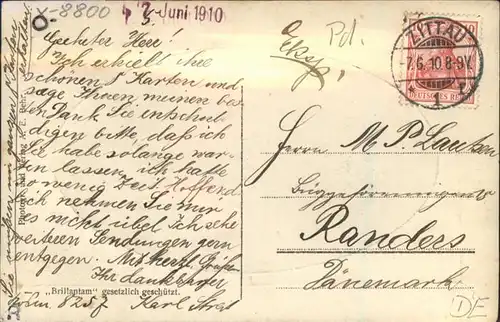 X-8800
7-Juni 1910
Geehrter Herr!
Ich erhielt ihre
schönen 5 Karten und
sage Ihnen meinen bes-
ten Dank. Sie entschul-
digen bitte, daß ich
Sie habe solange war-
ten lassen, ich hatte
so wenig Zeit. Hoffend-
lich nehmen Sie mir
es nicht übel. Ich sehe
weiteren Sendungen gern
entgegen. Mit herzl. Grüßen
Ihr dankbarer
Karl
„Brillantam" gesetzlich geschützt.
Pd.
ZITTAU
-7.6.10.8-9V.
DEUTSCHES REICH
Herrn M. P. Lautsen
Randers
Dänemark
DE